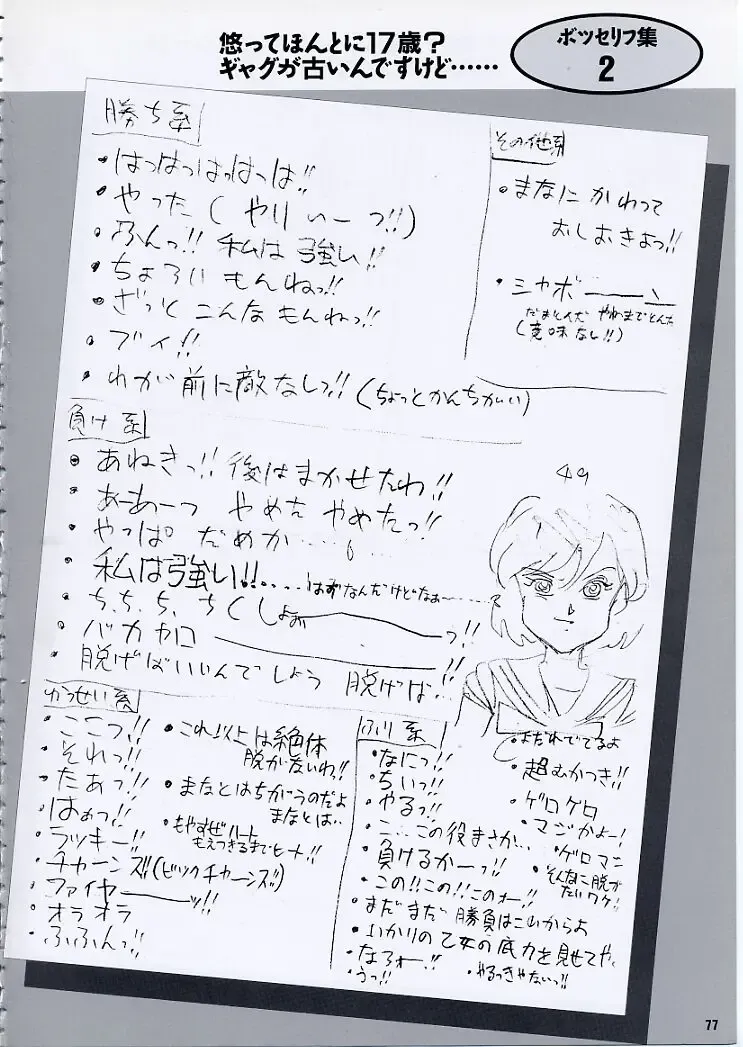 悠ってほんとに17歳?
ギャグが古いんですけど……
ボツセリフ集
2
勝ち系
・はっはっはっはっは!!
・やった(やりぃーっ!!)
・ふんっ!! 私は強い!!
・ちょろい もんねっ!!
・ざっと こんな もんねっ!!
・ブイ!!
・わが前に敵なしっ!!(ちょっとかんちがい)
その他系
・まなに かわって
おしおきよっ!!
・シャボーーン
(意味なし!!)
負け系
・あねきっ!! 後はまかせたわ!!
・あーあーっ やめた やめたっ!!
・やっぱ だめか……
・私は強い!!‥‥はずなんだけどなぁ
・ち、ち、ち、ちくしょぉーーっ!!
・バカヤローーっ!!
・脱げばいいんでしょう 脱げば!!
49
かっせい系
・ここっ!!
・それっ!!
・たぁっ!!
・はぁっ!!
・ラッキー!!
・チャーンズ!!(ビックチャーンズ!!)
・ファイヤーーッ!!
・オラオラ
・ふふんっ!!
・これ以上は絶体
脱がないわ!!
・まなとはちがうのだよ
まなとは‥
・もやすぜハート
もえつきるまでヒート!!
ふり系
・なにっ!!
・ちいっ!!
・やるっ!!
・こ…この役まさか…
・負けるかーっ!!
・この!!この!!このォー!!
・まだまだ 勝負はこれからよ
・いかりの乙女の底力を見せてや
・なろォー!!
・うっ!!
・やるっきゃないっ!!
・まだれでてるよ
・超むかつき!!
・ゲロゲロ
・マジかよー!
・ゲロマニ
・そんなに脱が
たいワケ!
77